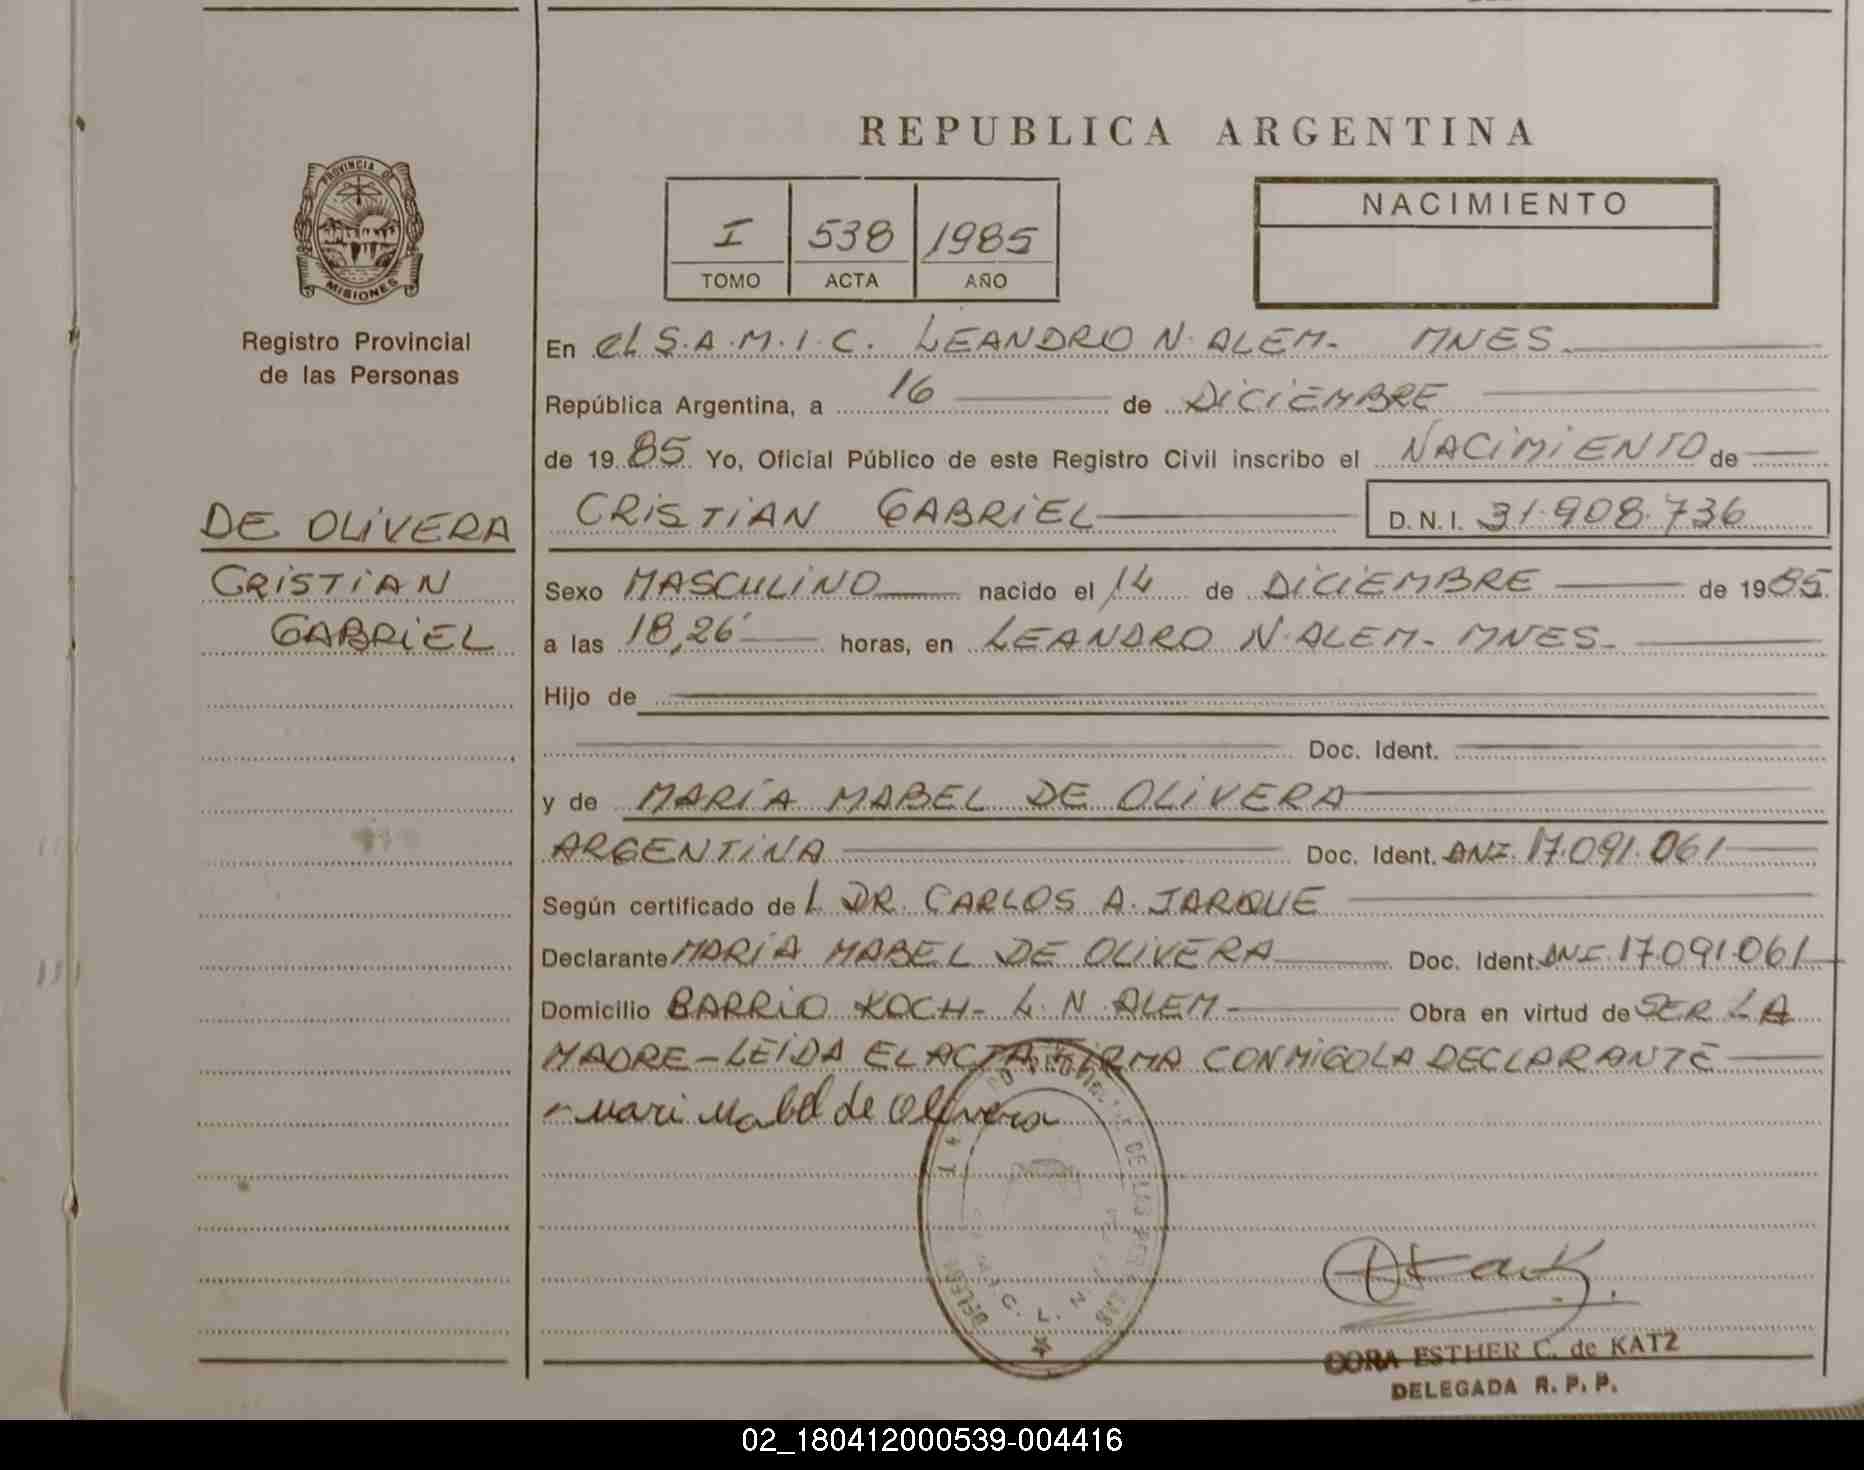 REPUBLICA ARGENTINA
PROVINCIA DE
MISIONES
Registro Provincial
de las Personas
I 538 1985
TOMO ACTA AÑO
NACIMIENTO
En el S.A.M.I.C. LEANDRO N. ALEM- MNES.
República Argentina, a 16 de DICIEMBRE
de 1985 Yo, Oficial Público de este Registro Civil inscribo el NACIMIENTO de
CRISTIAN GABRIEL D.N.I. 31.908.736
DE OLIVERA
CRISTIAN
GABRIEL
Sexo MASCULINO nacido el 14 de DICIEMBRE de 1985.
a las 18,26' horas, en LEANDRO N. ALEM- MNES-
Hijo de
Doc. Ident.
y de MARÍA MABEL DE OLIVERA
ARGENTINA Doc. Ident. DNI. 17.091.061
Según certificado de L DR. CARLOS A. JARQUE
Declarante MARÍA MABEL DE OLIVERA Doc. Ident. DNI. 17.091.061
Domicilio BARRIO KOCH- L. N. ALEM Obra en virtud de SER LA
MADRE-LEIDA EL ACTA FIRMA CONMIGO LA DECLARANTE
Mari Mabel de Olivera
DE LAS
CORA ESTHER C. de KATZ
DELEGADA R. P. P.
02_180412000539-004416